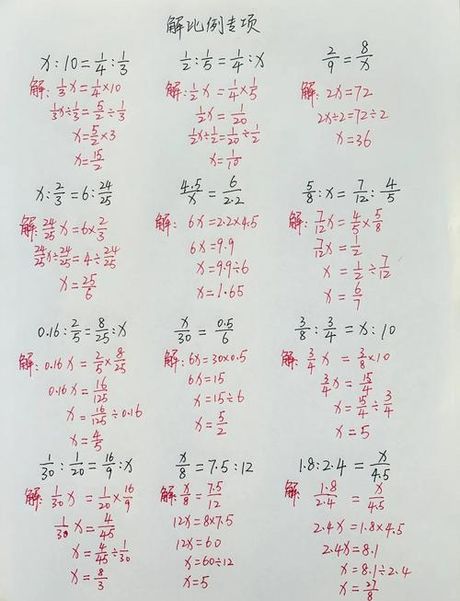 解比例专项
x:10=1/4:1/3
解:1/3x=1/4×10
1/3x÷1/3=5/2÷1/3
x=5/2×3
x=15/2
1/2:1/5=1/4:x
解:1/2x=1/4×1/5
1/2x=1/20
1/2x÷1/2=1/20÷1/2
x=1/10
2/9=8/x
解:2x=72
2x÷2=72÷2
x=36
x:2/3=6:24/25
解:24/25x=6×2/3
24/25x÷24/25=4÷24/25
x=25/6
4.5/x=6/2.2
解:6x=2.2×4.5
6x=9.9
x=9.9÷6
x=1.65
5/8:x=7/12:4/5
解:7/12x=4/5×5/8
7/12x=1/2
x=1/2÷7/12
x=6/7
0.16:2/5=8/25:x
解:0.16x=2/5×8/25
0.16x=16/125
x=16/125÷0.16
x=4/5
x/30=0.5/6
解:6x=30×0.5
6x=15
x=15÷6
x=5/2
3/8:3/4=x:10
解:3/4x=3/8×10
3/4x=15/4
x=15/4÷3/4
x=5
1/30:1/20=16/9:x
解:1/30x=1/20×16/9
1/30x=4/45
x=4/45÷1/30
x=8/3
x/8=7.5:12
解:x/8=7.5/12
12x=8×7.5
12x=60
x=60÷12
x=5
1.8:2.4=x/4.5
解:1.8/2.4=x/4.5
2.4x=1.8×4.5
2.4x=8.1
x=8.1÷2.4
x=27/8